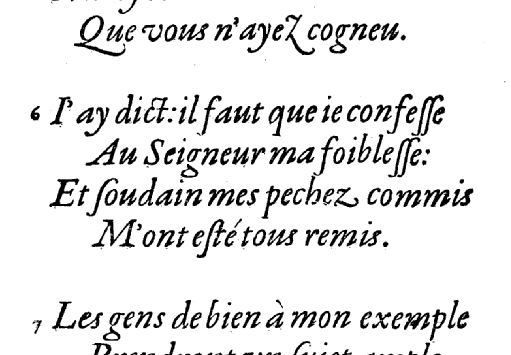 Que vous n'ayez cogneu.
6 I'ay dict: il faut que ie confeſſe
Au Seigneur ma foibleſſe:
Et ſoudain mes pechez commis
M'ont eſté tous remis.
7 Les gens de bien à mon exemple